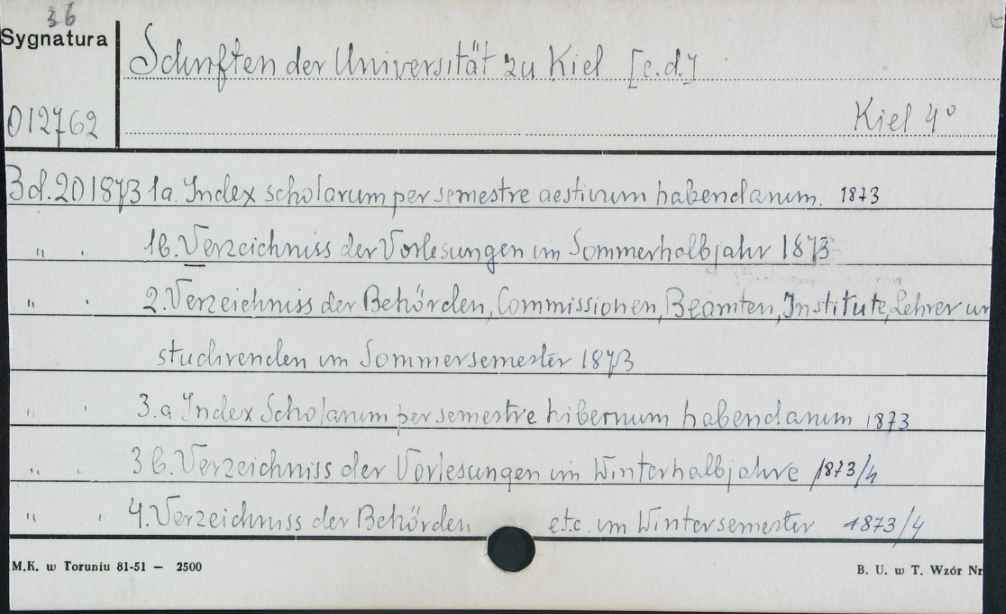 36
Sygnatura
Schriften der Universität zu Kiel [c.d.]
012762
Kiel 4°
Bd. 20 1873 1a. Index scholarum per semestre aestivum habendarum. 1873
" . 1b. Verzeichniss der Vorlesungen im Sommerhalbjahr 1873
" . 2. Verzeichniss der Behörden, Commissionen, Beamten, Institute, Lehrer un
studirenden im Sommersemester 1873
" . 3.a Index Scholarum per semestre hibernum habendarum 1873
" . 3b. Verzeichniss der Vorlesungen im Winterhalbjahre 1873/4
" . 4. Verzeichniss der Behörden etc. im Wintersemester 1873/4
M.K. w Toruniu 81-51 — 2500
B. U. w T. Wzór Nr